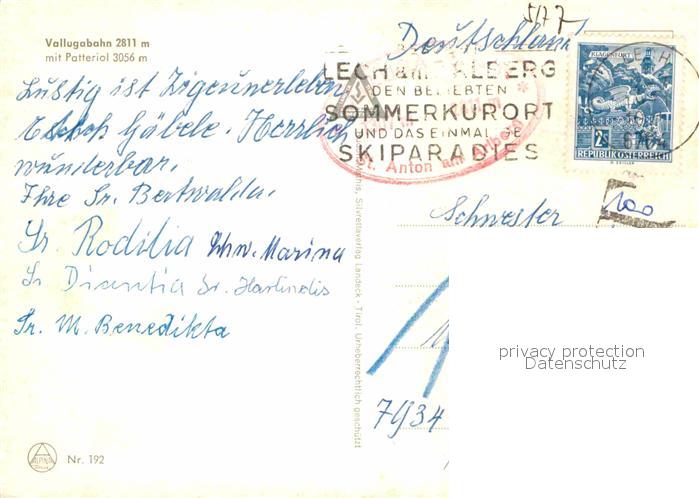 Vallugabahn 2811 m
mit Patteriol 3056 m
Lustig ist Zigeunerleben
Gäbele. Herrlich
wunderbar.
Ihre Sr. Bertwalda.
Sr. Rodilia Schw. Marina
Sr. Sr. Hartlindis
Sr. M. Benedikta
ALPINA
Nr. 192
Silvrettaverlag Landeck - Tirol. Urheberrechtlich geschützt
Deutschland
LECH am ARLBERG
DEN BELIEBTEN
SOMMERKURORT
UND DAS EINMALIGE
SKIPARADIES
St. Anton am Arlberg
KLAGENFURT
2S
REPUBLIK ÖSTERREICH
6764
T
100
Schwester
7934
privacy protection
Datenschutz